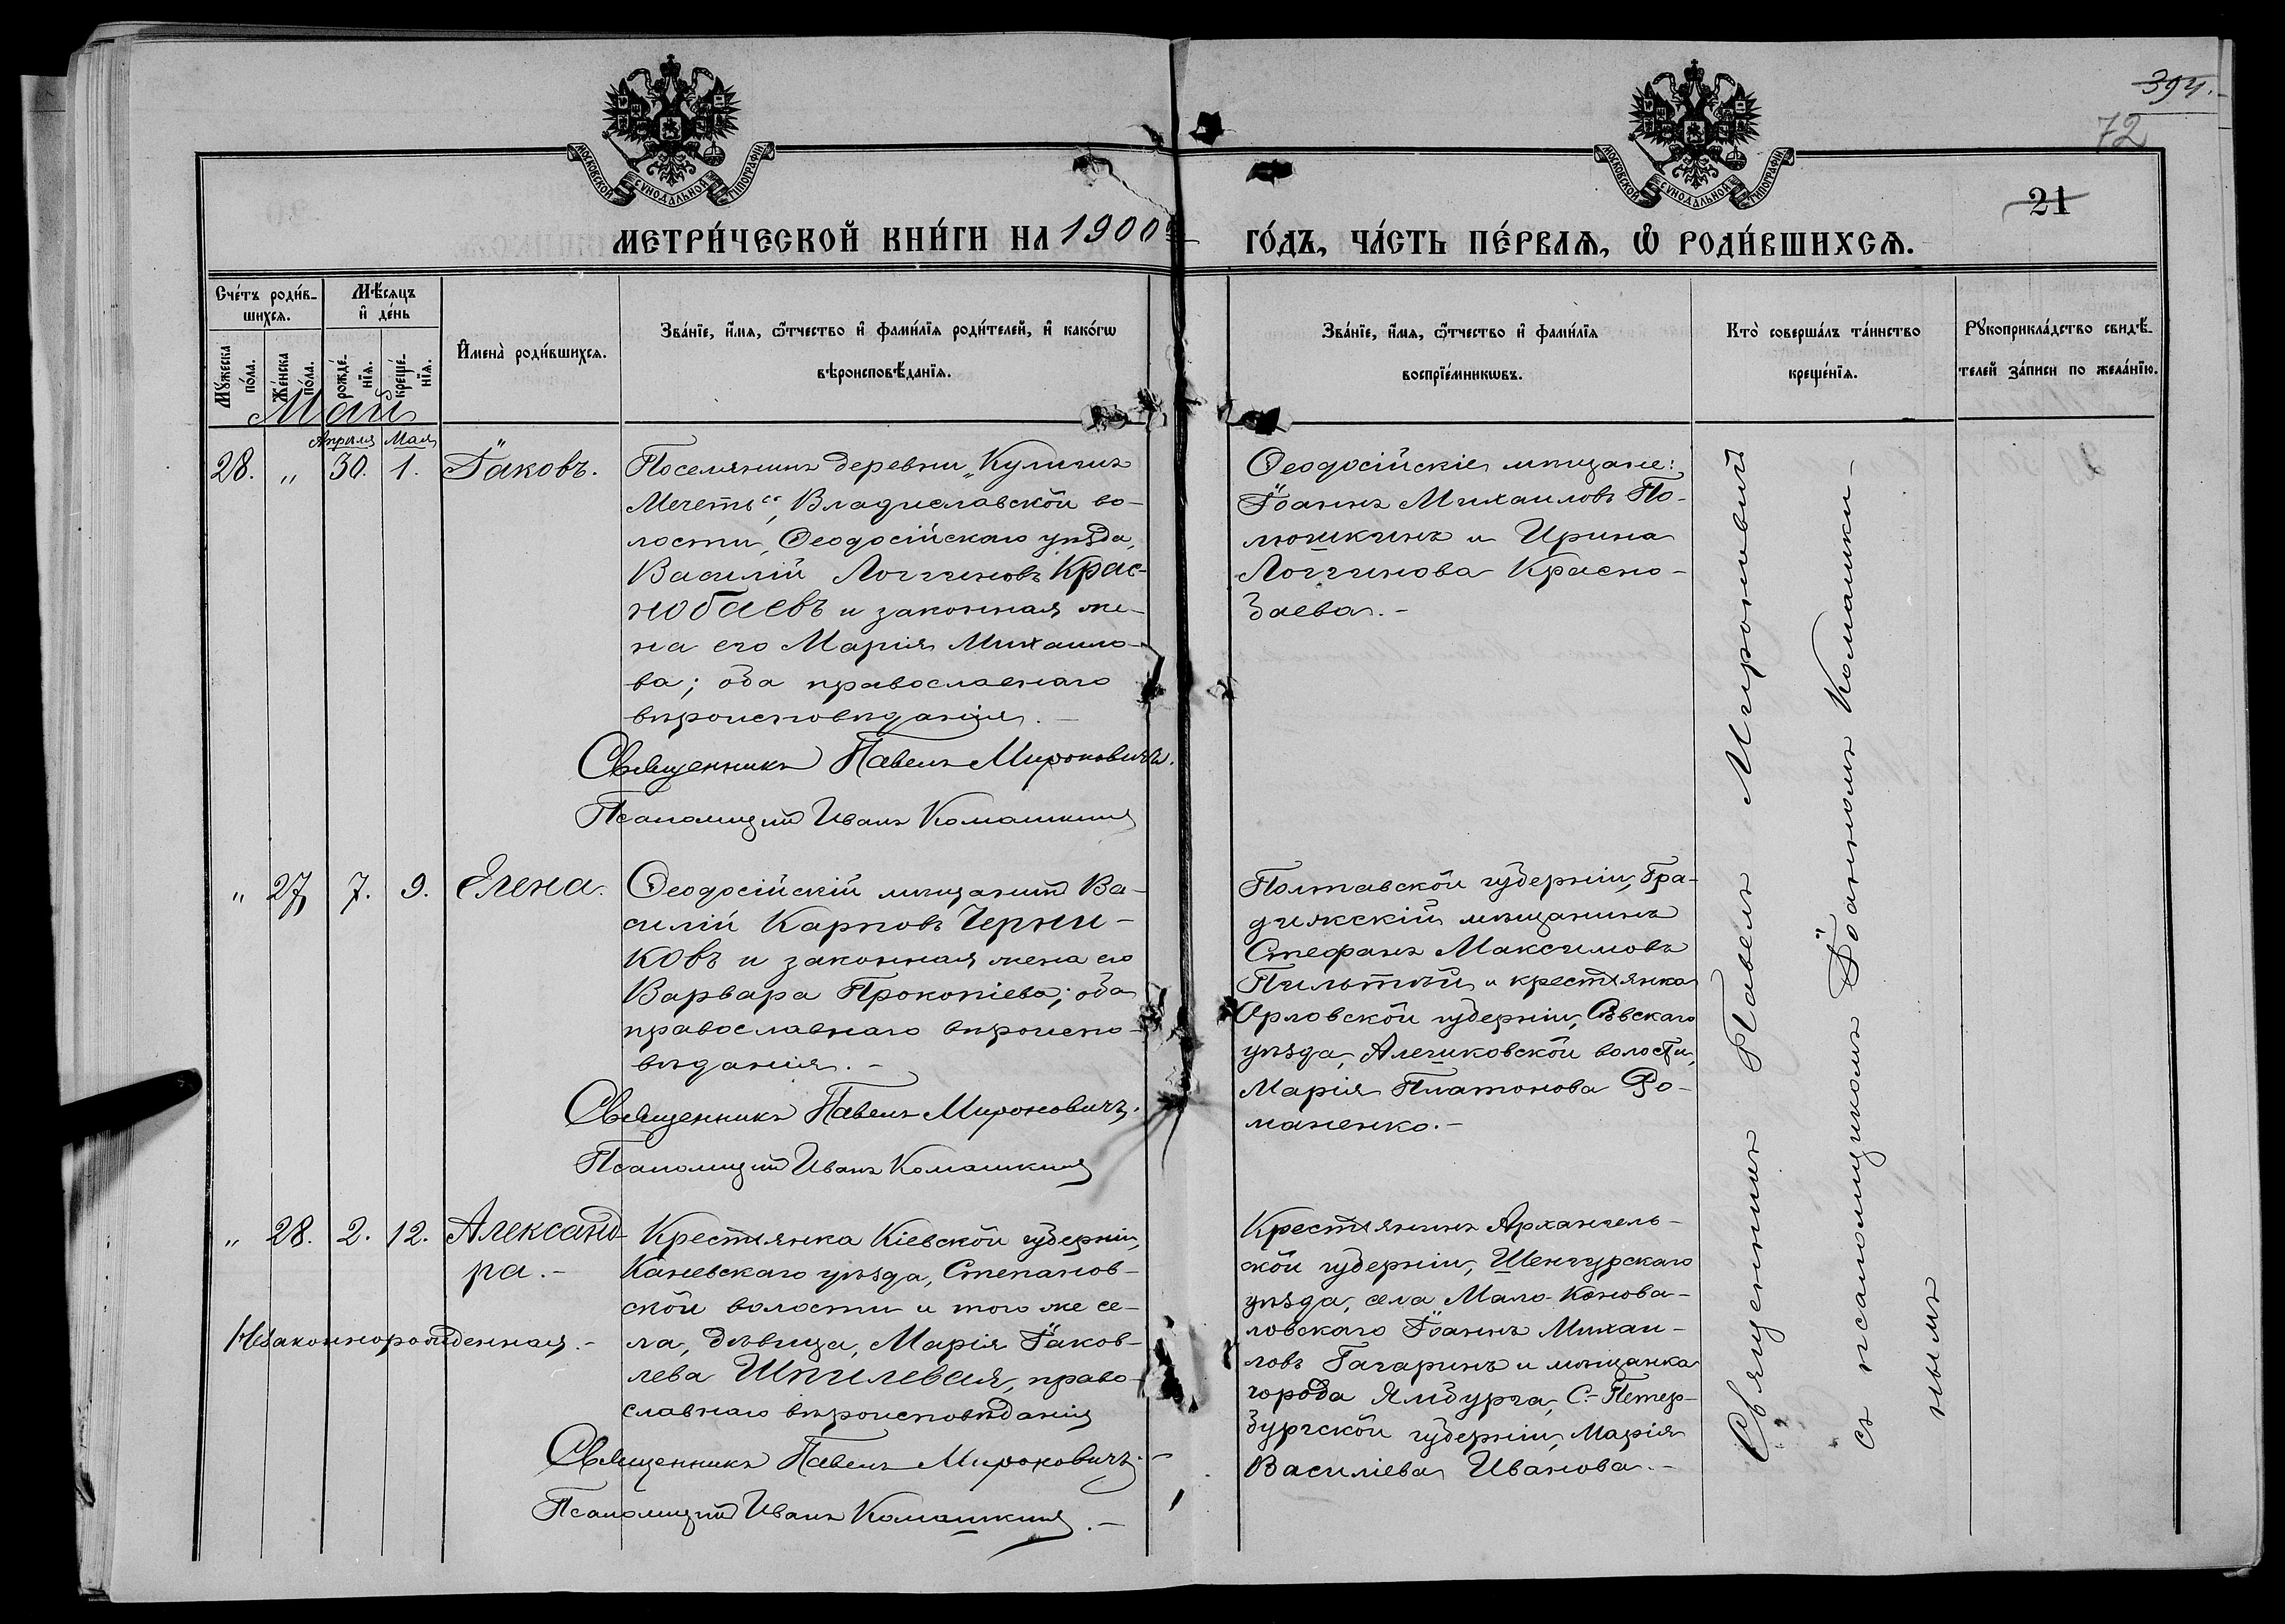 394.
72
21
МОСКОВСКОЙ СУНОДАЛЬНОЙ ТИПОГРАФІИ
МОСКОВСКОЙ СУНОДАЛЬНОЙ ТИПОГРАФІИ
МЕТРИ́ЧЕСКОЙ КНИ́ГИ НА 1900й ГО́ДЪ, ЧА́СТЬ ПЕ́РВАѦ, Ѡ РОДИ́ВШИХСѦ.
Сче́тъ роди́в-
шихсѧ.
Мѣ́сѧцъ
и де́нь
Мꙋ́жеска
по́ла.
Же́нска
по́ла.
рожде́-
нїѧ.
креще́-
нїѧ.
И҆мена̀ роди́вшихсѧ.
Зва́нїе, и҆́мѧ, ѻ҆́тчество и҆ фами́лїѧ роди́телей, и҆ како́гѡ
вѣроисповѣ́данїѧ.
Зва́нїе, и҆́мѧ, ѻ҆́тчество и҆ фами́лїѧ
воспрїе́мникѡвъ.
Кто̀ соверша́лъ та́инство
креще́нїѧ.
Рꙋкоприкла́дство свидѣ́-
телей за́писи по жела́нїю.
Май
Апрѣля Мая
28. " 30. 1. Іаковъ.
Поселянинъ деревни „Куличих
Мечеть“, Владиславской во-
лости, Ѳеодосійскаго уѣзда,
Василій Логгиновъ Крас-
нобаевъ и законная же-
на его Марія Михаило-
ва; оба православнаго
вѣроисповѣданія.-
Священникъ Павелъ Мироновичъ.
Псаломщикъ Иванъ Комашкинъ
Ѳеодосійскіе мѣщане:
Іоаннъ Михаиловъ По-
люшкинъ и Ирина
Логгинова Красно-
баева.-
" 27. 7. 9. Елена.
Ѳеодосійскій мѣщанинъ Ва-
силій Карповъ Черни-
ковъ и законная жена его
Варвара Прокопіева; оба
православнаго вѣроиспо-
вѣданія.-
Священникъ Павелъ Мироновичъ.
Псаломщикъ Иванъ Комашкинъ
Полтавской губерніи, Гра-
дижскій мѣщанинъ
Стефанъ Максимовъ
и крестьянка
Орловской губерніи, Сѣвскаго
уѣзда, Алешковской волости,
Марія Платонова Ро-
маненко.-
" 28. 2. 12. Александ-
ра.-
Незаконнорожденная.-
Крестьянка Кіевской губерніи,
Каневскаго уѣзда, Степанов-
ской волости и того же се-
ла, дѣвица, Марія Іаков-
лева Шпилевая, право-
славнаго вѣроисповѣданія
Священникъ Павелъ Мироновичъ.-
Псаломщикъ Иванъ Комашкинъ.-
Крестьянинъ Архангель-
ской губерніи, Шенкурскаго
уѣзда, села Мало-Конова-
ловскаго Іоаннъ Михаи-
ловъ Гагаринъ и мѣщанка
города Ямбурга, С-Петер-
бургской губерніи, Марія
Василіева Иванова.-
Священникъ Павелъ Мироновичъ
съ псаломщикомъ Іоанномъ Комашки-
нымъ